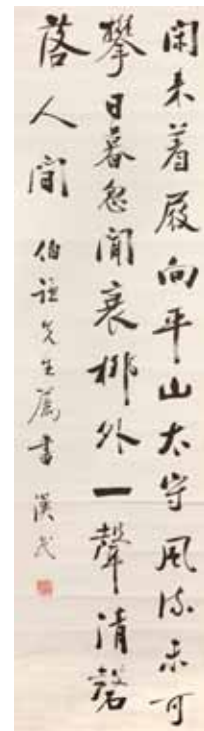 閑来着屐向平山太守風流未可
攀日暮忽聞衰柳外一聲清磬
落人間
伯先生属書 漢民